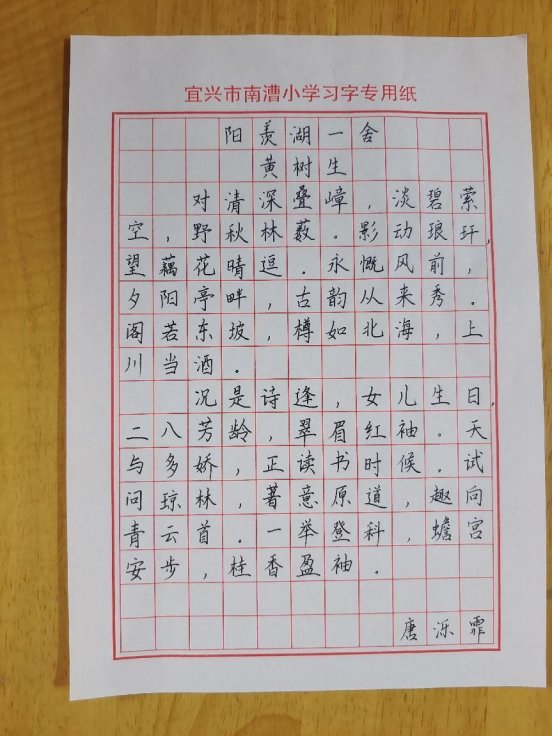 宜兴市南漕小学习字专用纸
阳羡湖一舍
黄树生
对清深叠嶂,淡碧萦
空,野秋林薮.影动琅玕,
望藕花晴逗.永慨风前,
夕阳亭畔,古韵从来秀.
阁若东坡,樽如北海,上
川当酒.
况是诗逢,女儿生日,
二八芳龄,翠眉红袖.天
与多娇,正读书时候.试
问琼林,著意原道,趣向
青云首.一举登科,蟾宫
安步,桂香盈袖.
唐泺霏